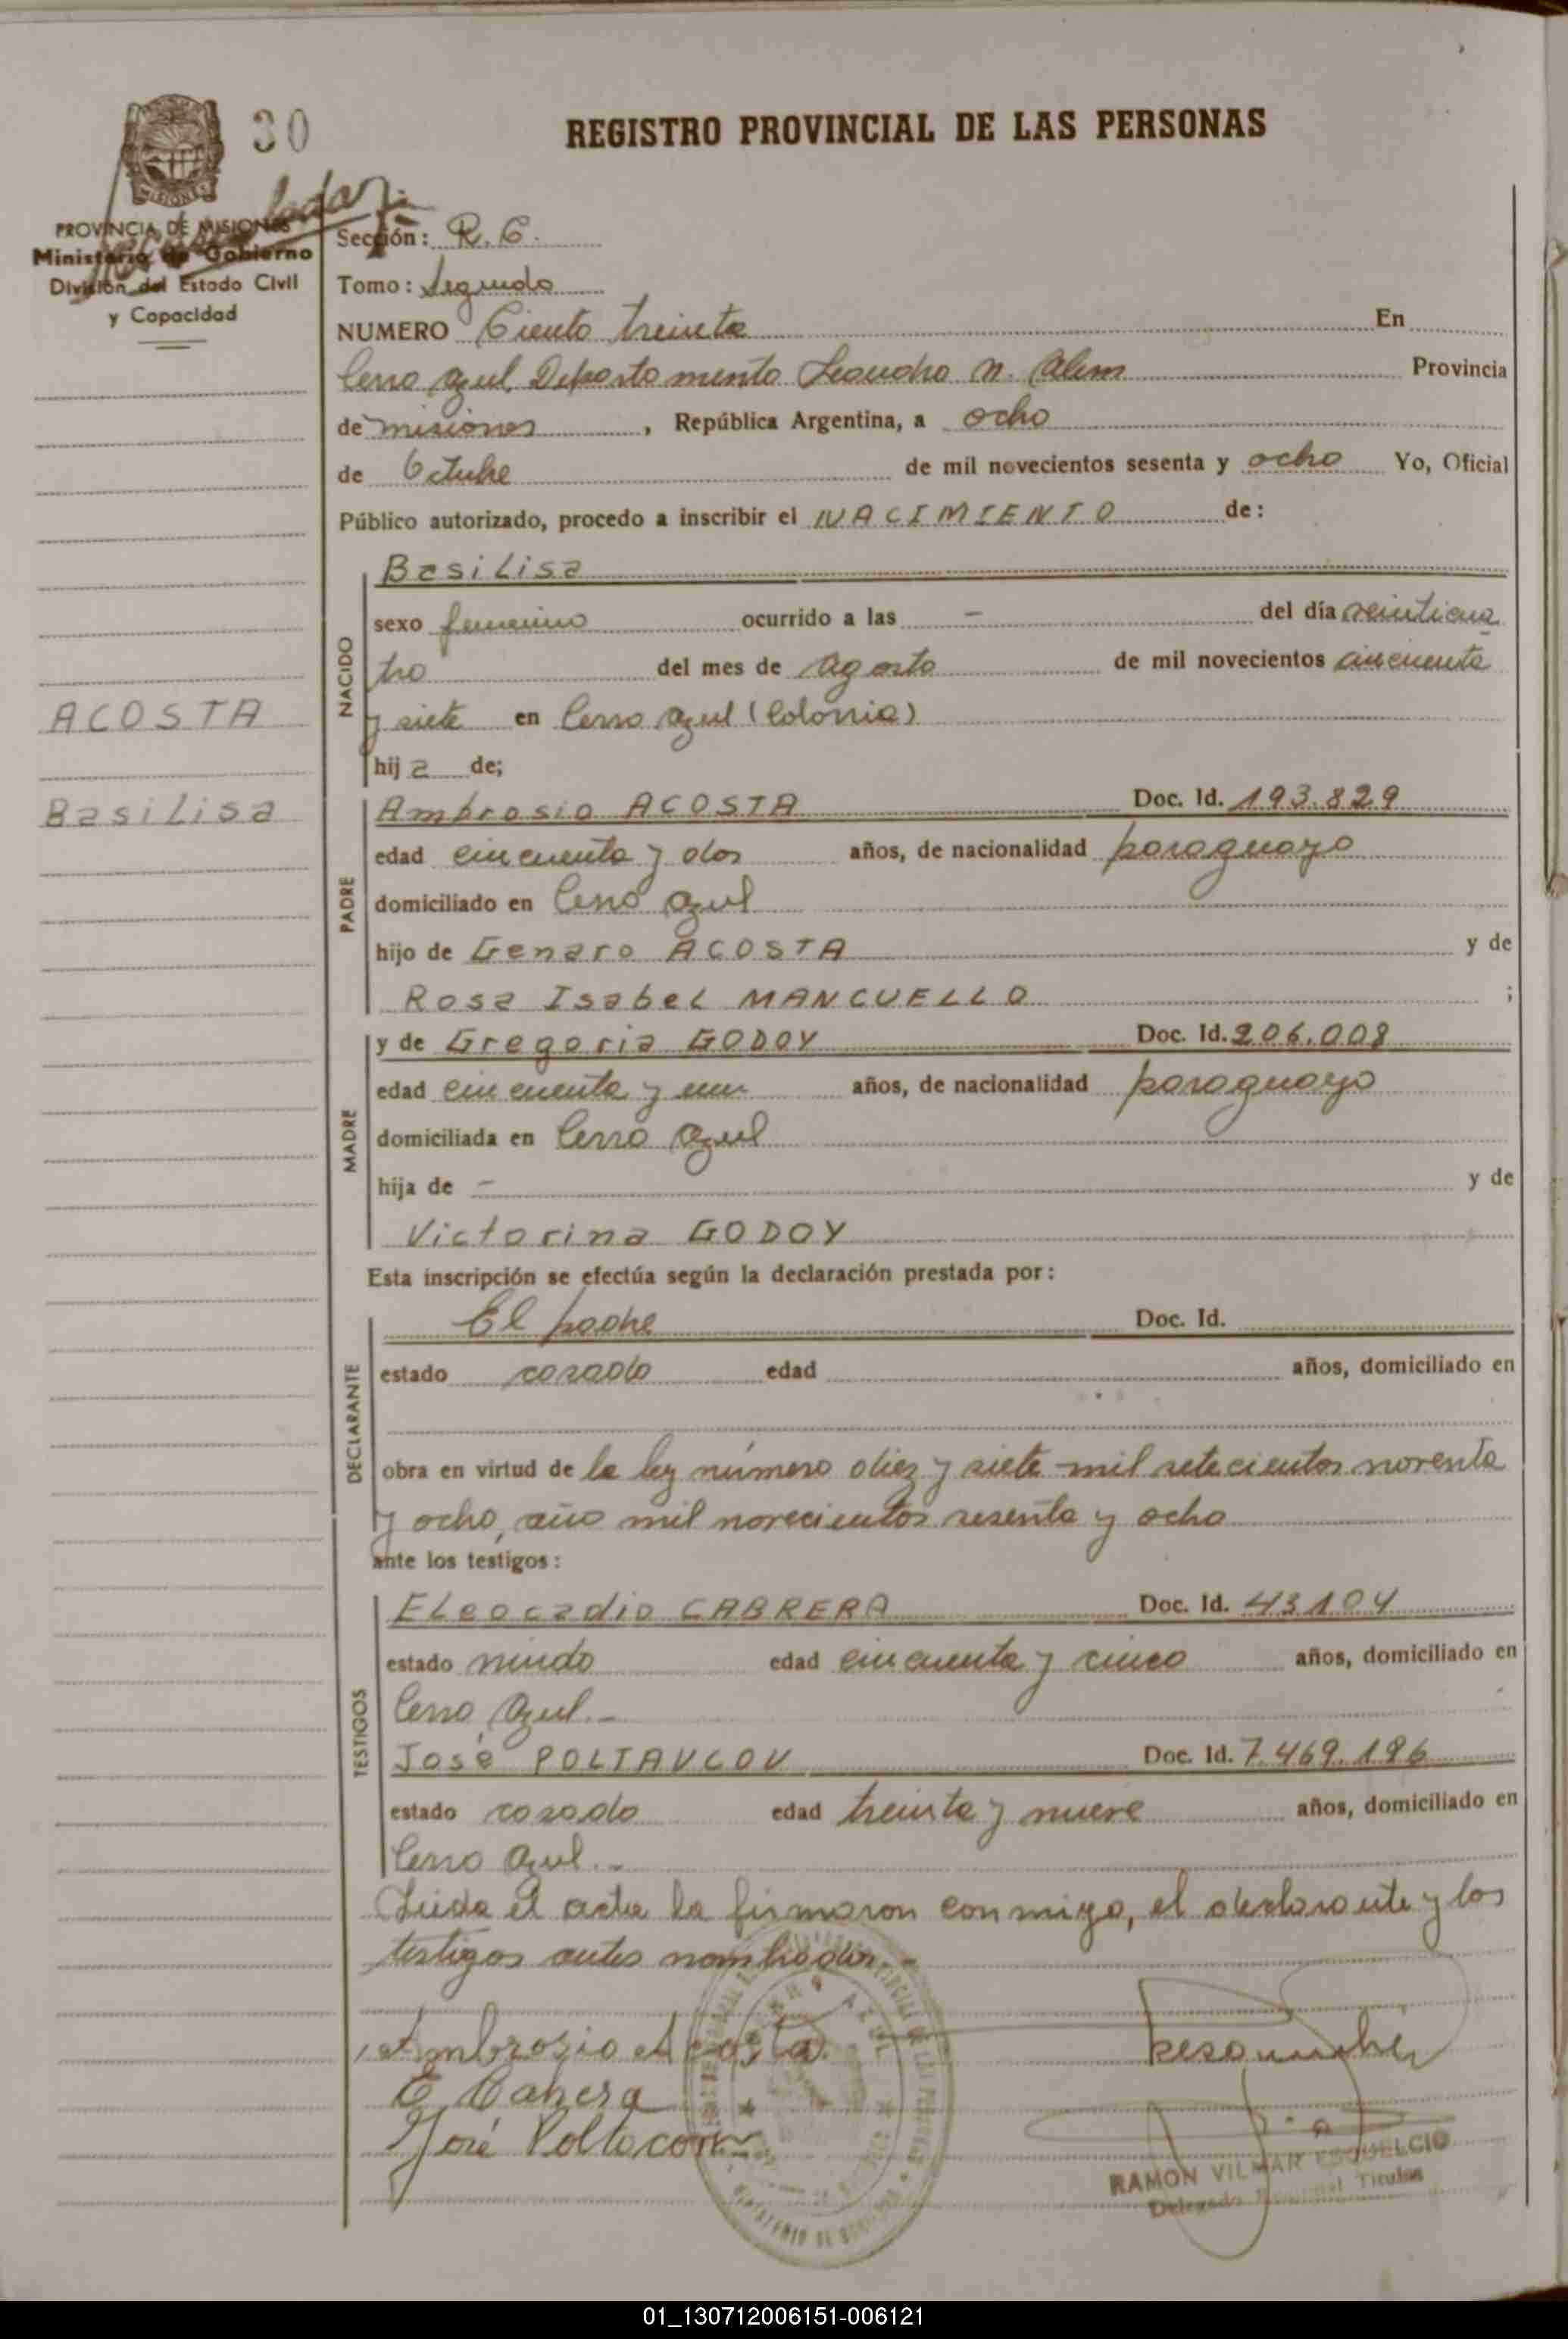 30
REGISTRO PROVINCIAL DE LAS PERSONAS
MISIONES
PROVINCIA DE MISIONES
Ministerio de Gobierno
División del Estado Civil
y Capacidad
Sección: R. C.
Tomo: Segundo
NUMERO Ciento treinta En
Cerro Azul, Departamento Leandro N. Alem Provincia
de misiones, República Argentina, a ocho
de Octubre de mil novecientos sesenta y ocho Yo, Oficial
Público autorizado, procedo a inscribir el NACIMIENTO de:
NACIDO
Basilisa
sexo femenino ocurrido a las - del día veinticua
tro del mes de Agosto de mil novecientos cincuenta
y siete en Cerro Azul (Colonia)
hija de;
ACOSTA
Basilisa
PADRE
Ambrosio ACOSTA Doc. Id. 193.829
edad cincuenta y dos años, de nacionalidad paraguayo
domiciliado en Cerro Azul
hijo de Genaro ACOSTA y de
Rosa Isabel MANCUELLO ;
MADRE
y de Gregoria GODOY Doc. Id. 206.008
edad cincuenta y un años, de nacionalidad paraguaya
domiciliada en Cerro Azul
hija de - y de
Victorina GODOY
Esta inscripción se efectúa según la declaración prestada por:
DECLARANTE
El padre Doc. Id.
estado casado edad años, domiciliado en
obra en virtud de la ley número diez y siete mil setecientos noventa
y ocho, año mil novecientos sesenta y ocho
ante los testigos:
TESTIGOS
Eleocadio CABRERA Doc. Id. 43104
estado viudo edad cincuenta y cinco años, domiciliado en
Cerro Azul.-
José POLTAVCOV Doc. Id. 7.469.186
estado casado edad treinta y nueve años, domiciliado en
Cerro Azul.-
Leida el acta la firmaron conmigo, el declarante y los
testigos antes nombrados.-
Ambrosio Acosta
E. Cabrera
José
RAMON VILMAR ESQUELCIO
Delegado Titular
01_130712006151-006121